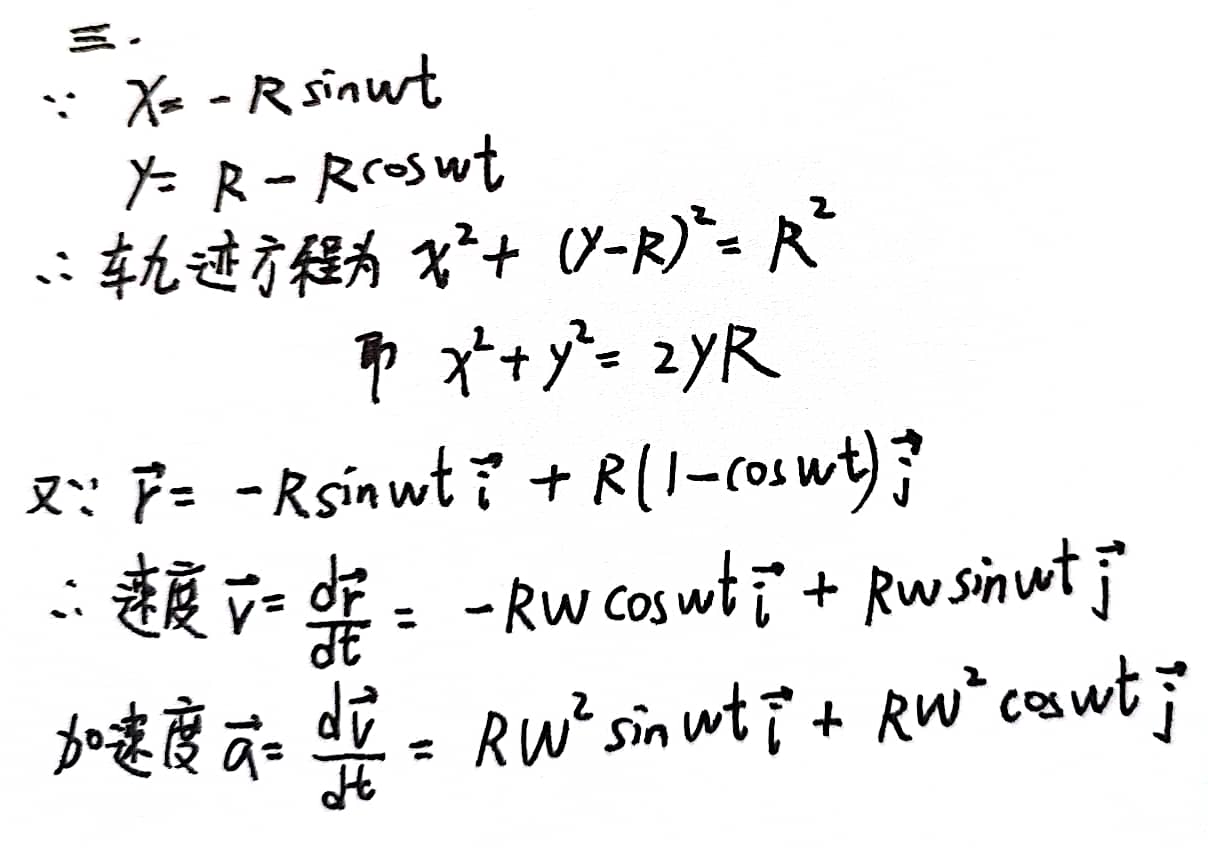 三.
∵ x = -R sinwt
y = R - Rcoswt
∴ 轨迹方程为 x² + (y-R)² = R²
即 x² + y² = 2yR
又∵ r⃗ = -Rsinwt i⃗ + R(1-coswt) j⃗
∴ 速度 v⃗ = dr⃗/dt = -Rw coswt i⃗ + Rw sinwt j⃗
加速度 a⃗ = dv⃗/dt = Rw² sin wt i⃗ + Rw² coswt j⃗